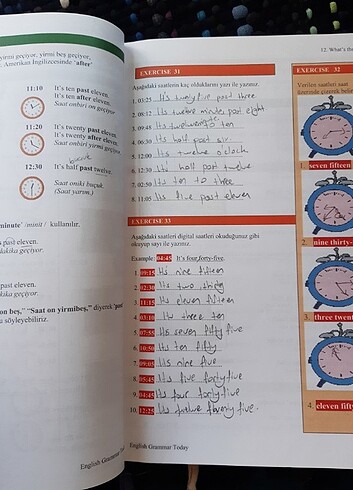 yirmi geçiyor, yirmi beş geçiyor,
Amerikan İngilizcesinde 'after'
11:10 It's ten past eleven.
It's ten after eleven.
Saat onbiri on geçiyor.
11:20 It's twenty past eleven.
It's twenty after eleven.
Saat onbiri yirmi geçiyor.
12:30 It's half past twelve.
Saat oniki buçuk.
(Saat yarım.)
minute' /minit / kullanılır.
past eleven.
dakika geçiyor.
past eleven.
dakika geçiyor.
on beş," "Saat on yirmibeş," diyerek
söyleyebiliriz.
English Grammar Today
EXERCISE 31
Aşağıdaki saatlerin kaç olduklarını yazı ile yazınız.
1. 03:25 It's twenty five past three
2. 08:12 It's twelve minute past eight
3. 09:48 It's twelve to ten
4. 06:30 It's half past six
5. 12:00 It's twelve o'clock
6. 12:30 It's half past twelve
7. 02:50 It's ten to three
8. 11:05 It's five past eleven
EXERCISE 33
Aşağıdaki saatleri digital saatleri okuduğunuz gibi
okuyup sayı ile yazınız.
Example : 04:45 It's four forty-five.
1. 09:15 It's nine fifteen
2. 02:30 It's two thirty
3. 11:15 It's eleven fifteen
4. 03:10 It's three ten
5. 07:55 It's seven fifty five
6. 10:50 It's ten fifty
7. 09:05 It's nine five
8. 05:45 It's five forty five
9. 04:45 It's four forty five
10. 12:25 It's twelve twenty five.
English Grammar Today
12. What's the
EXERCISE 32
Verilen saatleri saat
üzerinde çizerek
1. seven fifteen
2. nine thirty-
3. three twent
4. eleven fift